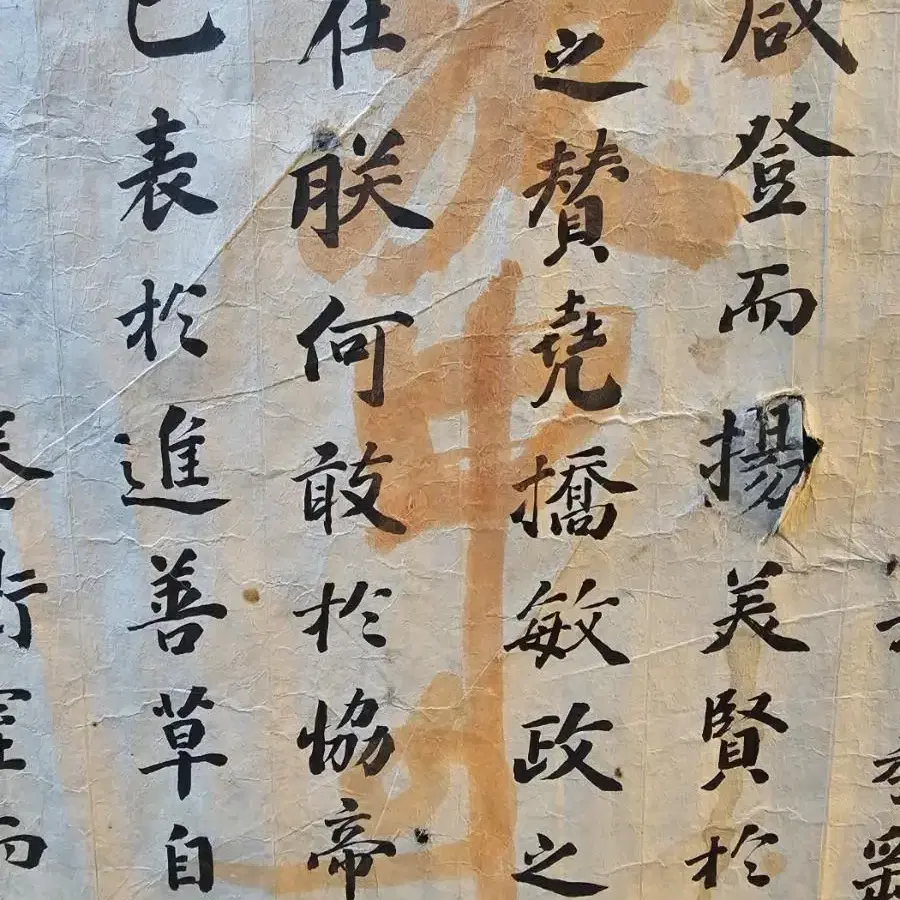 咸登而揚美賢於
之賛堯撟敏政之
朕何敢於恊帝
已表於進善草自
而